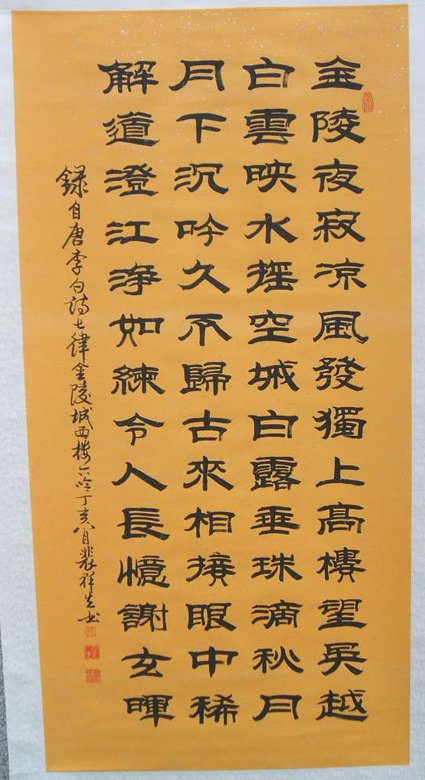 金陵夜寂凉風發獨上高樓望吳越
白雲映水摇空城白露垂珠滴秋月
月下沉吟久不歸古來相接眼中稀
解道澄江淨如練令人長憶謝玄暉
録自唐李白詩七律金陵城西楼下吟丁亥八月裴祥生书